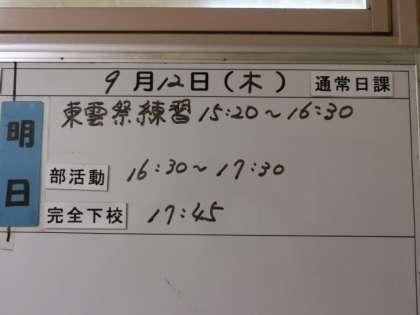 9月12日(木) 通常日課
明日
東雲祭練習 15:20～16:30
部活動 16:30～17:30
完全下校 17:45